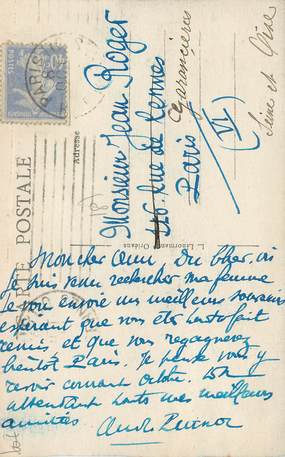 CARTE POSTALE
Adresse
Monsieur Jean Roger
116 Rue de Rennes
Garancières
Paris (VI)
Seine et Oise
L. Lenormand Orléans
PARIS
POSTES
Mon cher ami, Du Cher, où
je suis venu rechercher ma femme
je vous envoie un meilleur souvenir
espérant que vous êtes tout à fait
remis, et que vous regagnerez
bientôt Paris. Je pense vous y
revoir courant Octobre. En
attendant toutes mes meilleures
amitiés